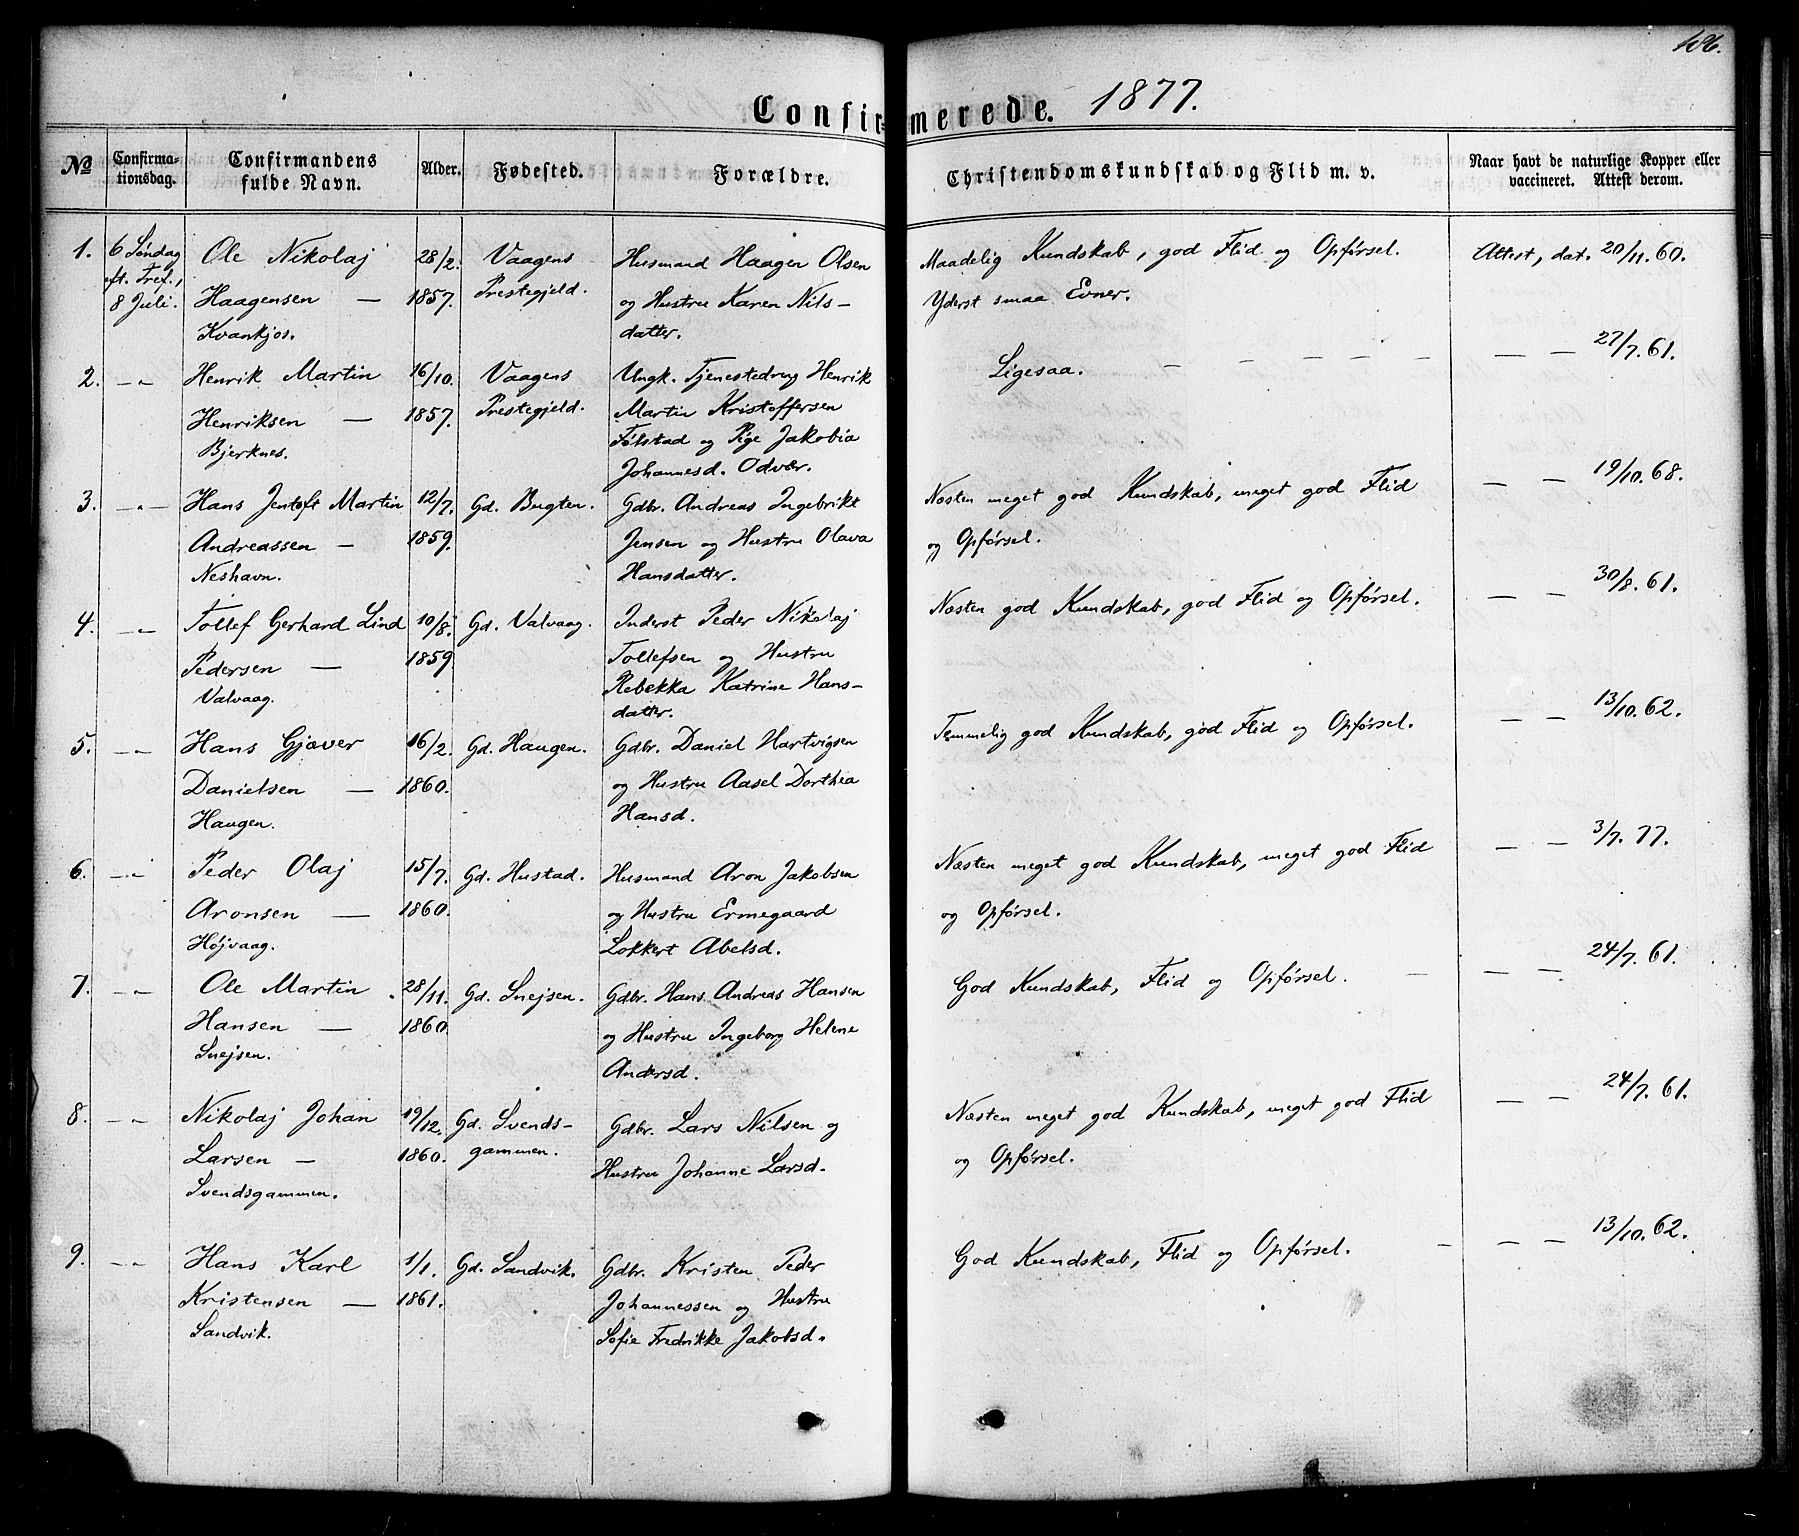 106.
Confirmerede. 1877.
No Confirmationsdag. Confirmandens fulde Navn. Alder. Fødested. Forældre. Christendomskundskab og Flid m. v. Naar havt de naturlige Kopper eller vaccineret. Attest derom.
1. 6 Søndag Ole Nikolaj 28/2. Vaagens Husmand Haagen Olsen Maadelig Kundskab, god Flid og Opførsel. Attest, dat. 20/11. 60.
eft. Tref., Haagensen — 1857. Prestegjeld. og Hustru Karen Nils- Yderst smaa Evner.
8 Juli. Kvankjos. datter.
2. —"— Henrik Martin 16/10. Vaagens Ungk. Tjenestedreng Henrik Ligesaa. — — — — — — — — — 27/7. 61.
Henriksen — 1857. Prestegjeld. Martin Kristoffersen
Bjerknes. Følstad og Pige Jakobia
Johannesd. Odvær.
3. —"— Hans Jentoft Martin 12/7. Gd. Bugten. Gdbr. Andreas Ingebrikt Næsten meget god Kundskab, meget god Flid — — 19/10. 68.
Andreassen — 1859. Jensen og Hustru Olava og Opførsel.
Neshavn. Hansdatter.
4. —"— Tollef Gerhard Lind 10/8. Gd. Valvaag. Inderst Peder Nikolaj Næsten god Kundskab, god Flid og Opførsel. — — 30/8. 61.
Pedersen — 1859 Tollefsen og Hustru
Valvaag. Rebekka Katrine Hans-
datter.
5. —"— Hans Gjæver 16/2. Gd. Haugen. Gdbr. Daniel Hartvigsen Temmelig god Kundskab, god Flid og Opførsel. — — 13/10. 62.
Danielsen — 1860. og Hustru Aasel Dorthea
Haugen. Hansd.
6. —"— Peder Olaj 15/7. Gd. Hustad. Husmand Aron Jakobsen Næsten meget god Kundskab, meget god Flid — — 3/7. 77.
Aronsen — 1860. og Hustru Ermegaard og Opførsel.
Højvaag. Lokkert Abelsd.
7. —"— Ole Martin 28/11. Gd. Snejsen. Gdbr. Hans Andreas Hansen God Kundskab, Flid og Opførsel. — — — 24/7. 61.
Hansen — 1860 og Hustru Ingeborg Helene
Snejsen. Andersd.
8. —"— Nikolaj Johan 19/12. Gd. Svends- Gdbr. Lars Nilsen og Næsten meget god Kundskab, meget god Flid — — 24/7. 61.
Larsen — 1860. gammen. Hustru Johanne Larsd. og Opførsel.
Svendsgammen.
9. —"— Hans Karl 1/1. Gd. Sandvik. Gdbr. Kristen Peder God Kundskab, Flid og Opførsel. — — — 13/10. 62.
Kristensen — 1861. Johannessen og Hustru
Sandvik. Sofie Fredrikke Jakobsd.